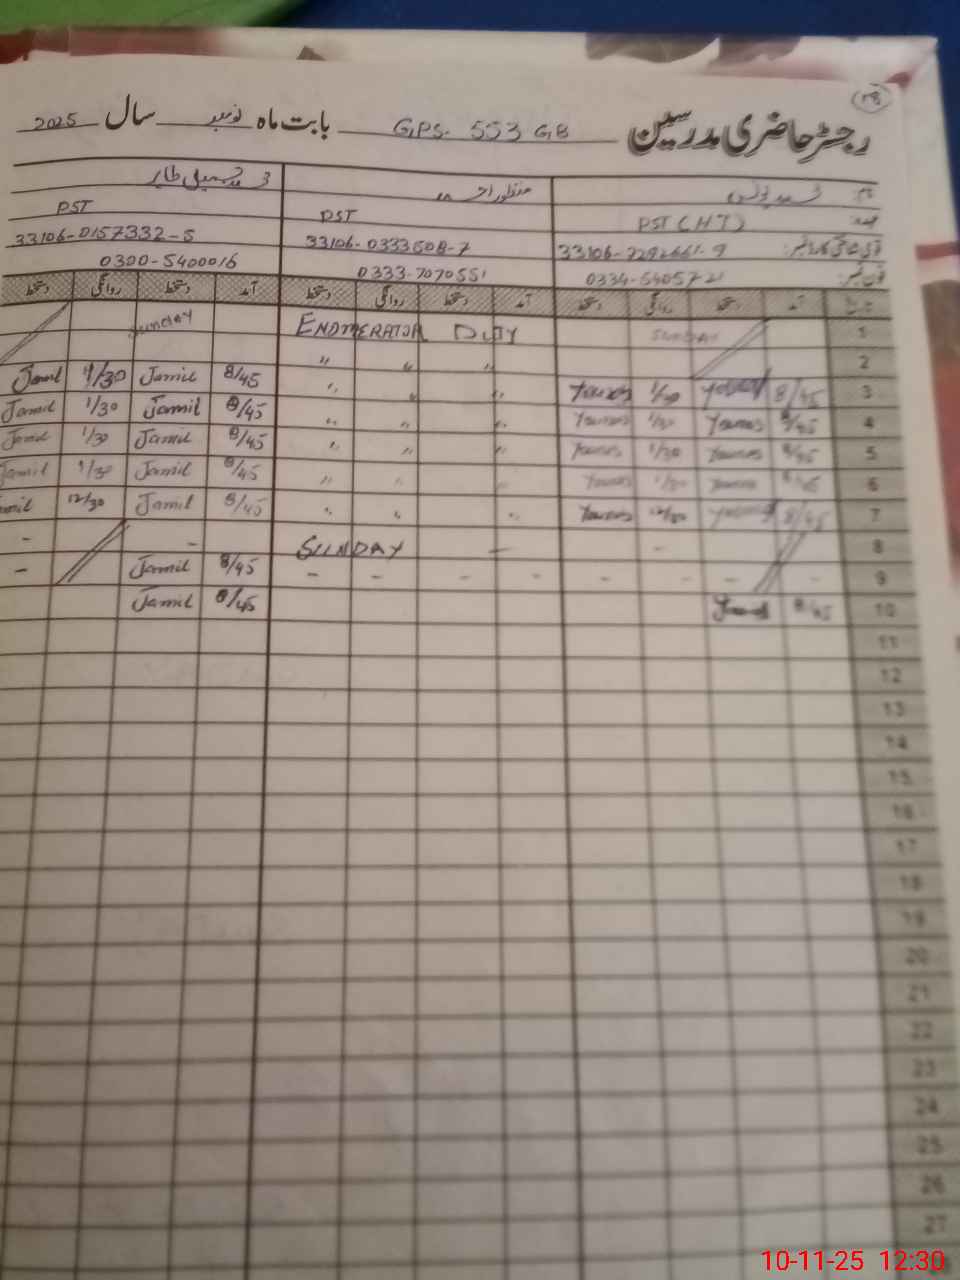 28
رجسٹر حاضری مدرسین GPS. 553 GB بابت ماہ نومبر سال 2025
نام: محمد یونس منظور احمد محمد جمیل طاہر
عہدہ: PST (HT) PST PST
33106-0333608-7 33106-0157332-5
0333-7070551 0300-5400016
تاریخ آمد دستخط روانگی دستخط آمد دستخط روانگی دستخط آمد دستخط روانگی دستخط
1 SUNDAY ENUMERATOR DUTY Sunday
2 " " "
3 8/45 Younas 1/30 Younas " " " 8/45 Jamil 1/30 Jamil
4 8/45 Younas 1/30 Younas " " " 8/45 Jamil 1/30 Jamil
5 8/45 Younas 1/30 Younas " " " 8/45 Jamil 1/30 Jamil
6 8/45 Younas 1/30 Younas " " " 8/45 Jamil 1/30 Jamil
7 8/45 Younas 12/30 Younas " " " 8/45 Jamil 12/30 Jamil
8 - SUNDAY - - -
9 - - - - - - - - 8/45 Jamil -
10 8/45 Younas 8/45 Jamil
11
12
13
14
15
16
17
18
19
20
21
22
23
24
25
26
27
10-11-25 12:30